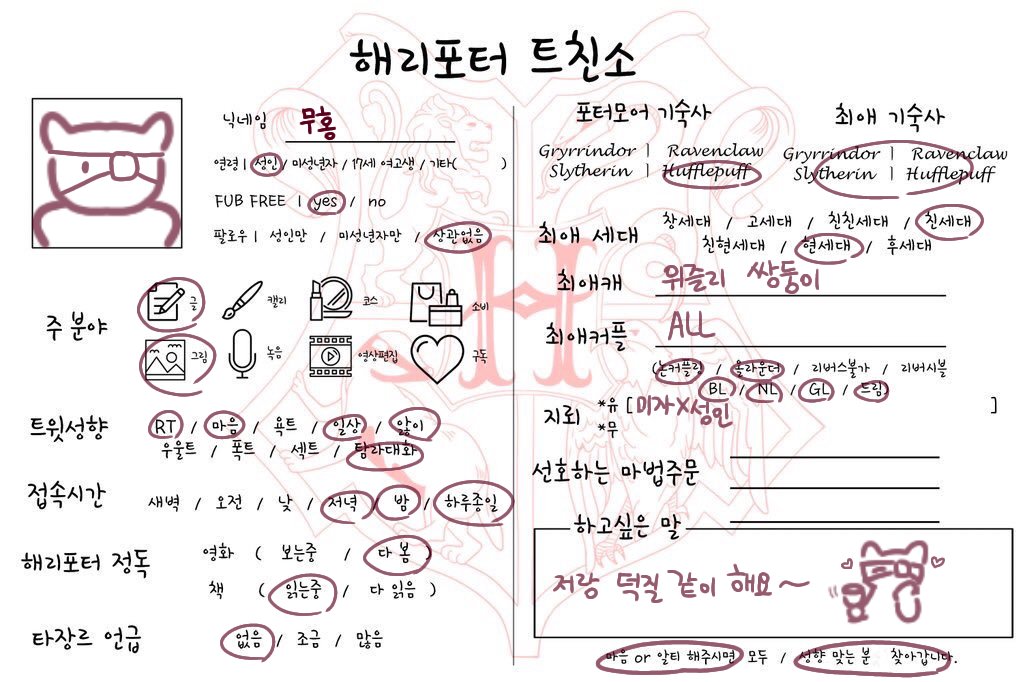 해리포터 트친소
닉네임 무홍
연령 | 성인 / 미성년자 / 17세 여고생 / 기타( )
FUB FREE | yes / no
팔로우 | 성인만 / 미성년자만 / 상관없음
주 분야
글 캘리 코스 소비
그림 녹음 영상편집 구독
트윗성향
RT / 마음 / 욕트 / 일상 / 앓이
우울트 / 폭트 / 섹트 / 탐라대화
접속시간
새벽 / 오전 / 낮 / 저녁 / 밤 / 하루종일
해리포터 정독
영화 ( 보는중 / 다 봄 )
책 ( 읽는중 / 다 읽음 )
타장르 언급
없음 / 조금 / 많음
포터모어 기숙사
Gryrrindor | Ravenclaw
Slytherin | Hufflepuff
최애 기숙사
Gryrrindor | Ravenclaw
Slytherin | Hufflepuff
최애 세대
창세대 / 고세대 / 친친세대 / 친세대
친현세대 / 현세대 / 후세대
최애캐 위즐리 쌍둥이
최애커플 ALL
(논커플링 / 올라운더 / 리버스불가 / 리버시블
BL / NL / GL / 드림)
지뢰
*유 [미자X성인 ]
*무
선호하는 마법주문
하고싶은 말
저랑 덕질 같이 해요~
마음 or 알티 해주시면 모두 / 성향 맞는 분 찾아갑니다.
H